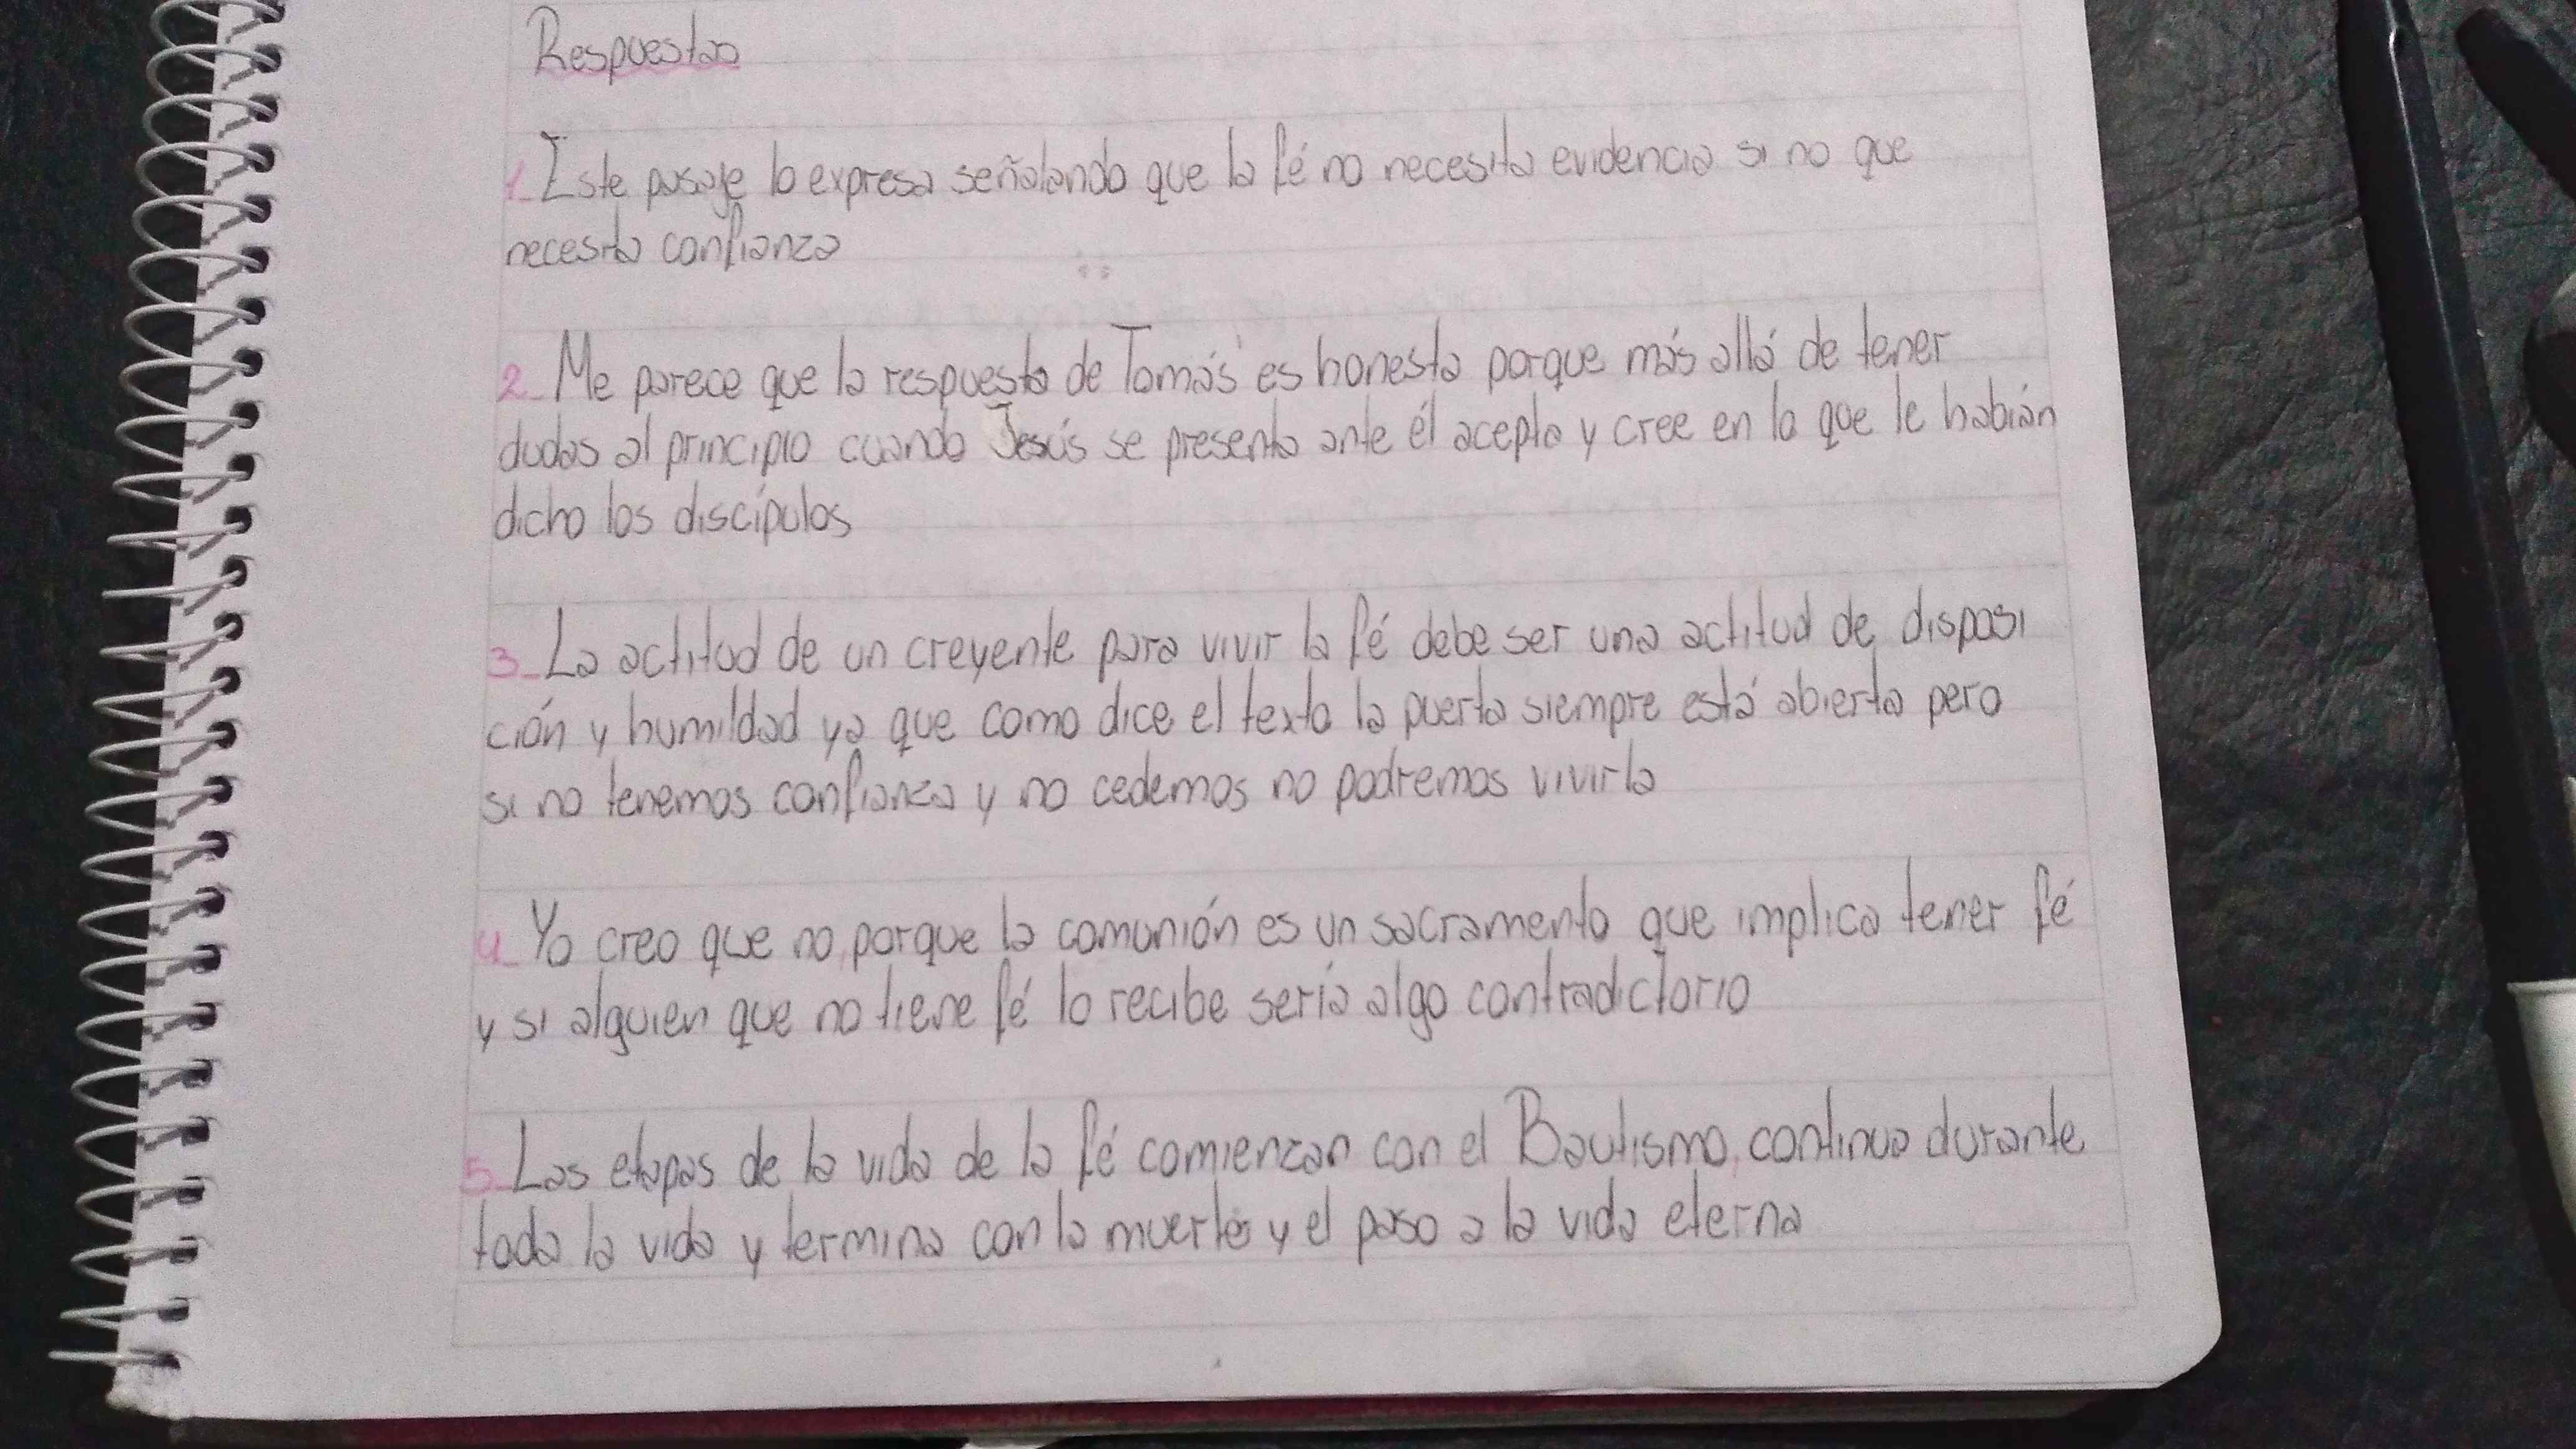 Respuestas
1_ Este pasaje lo expresa señalando que la fé no necesita evidencia si no que
necesita confianza
2_ Me parece que la respuesta de Tomás es honesta porque más allá de tener
dudas al principio cuando Jesús se presenta ante él acepta y cree en lo que le habián
dicho los discípulos
3_ La actitud de un creyente para vivir la fé debe ser una actitud de disposi
ción y humildad ya que como dice el texto la puerta siempre está abierta pero
si no tenemos confianza y no cedemos no podremos vivirla
4_ Yo creo que no, porque la comunión es un sacramento que implica tener fé
y si alguien que no tiene fé lo recibe sería algo contradictorio
5_ Las etapas de la vida de la fé comienzan con el Bautismo, continua durante
toda la vida y termina con la muerte y el paso a la vida eterna